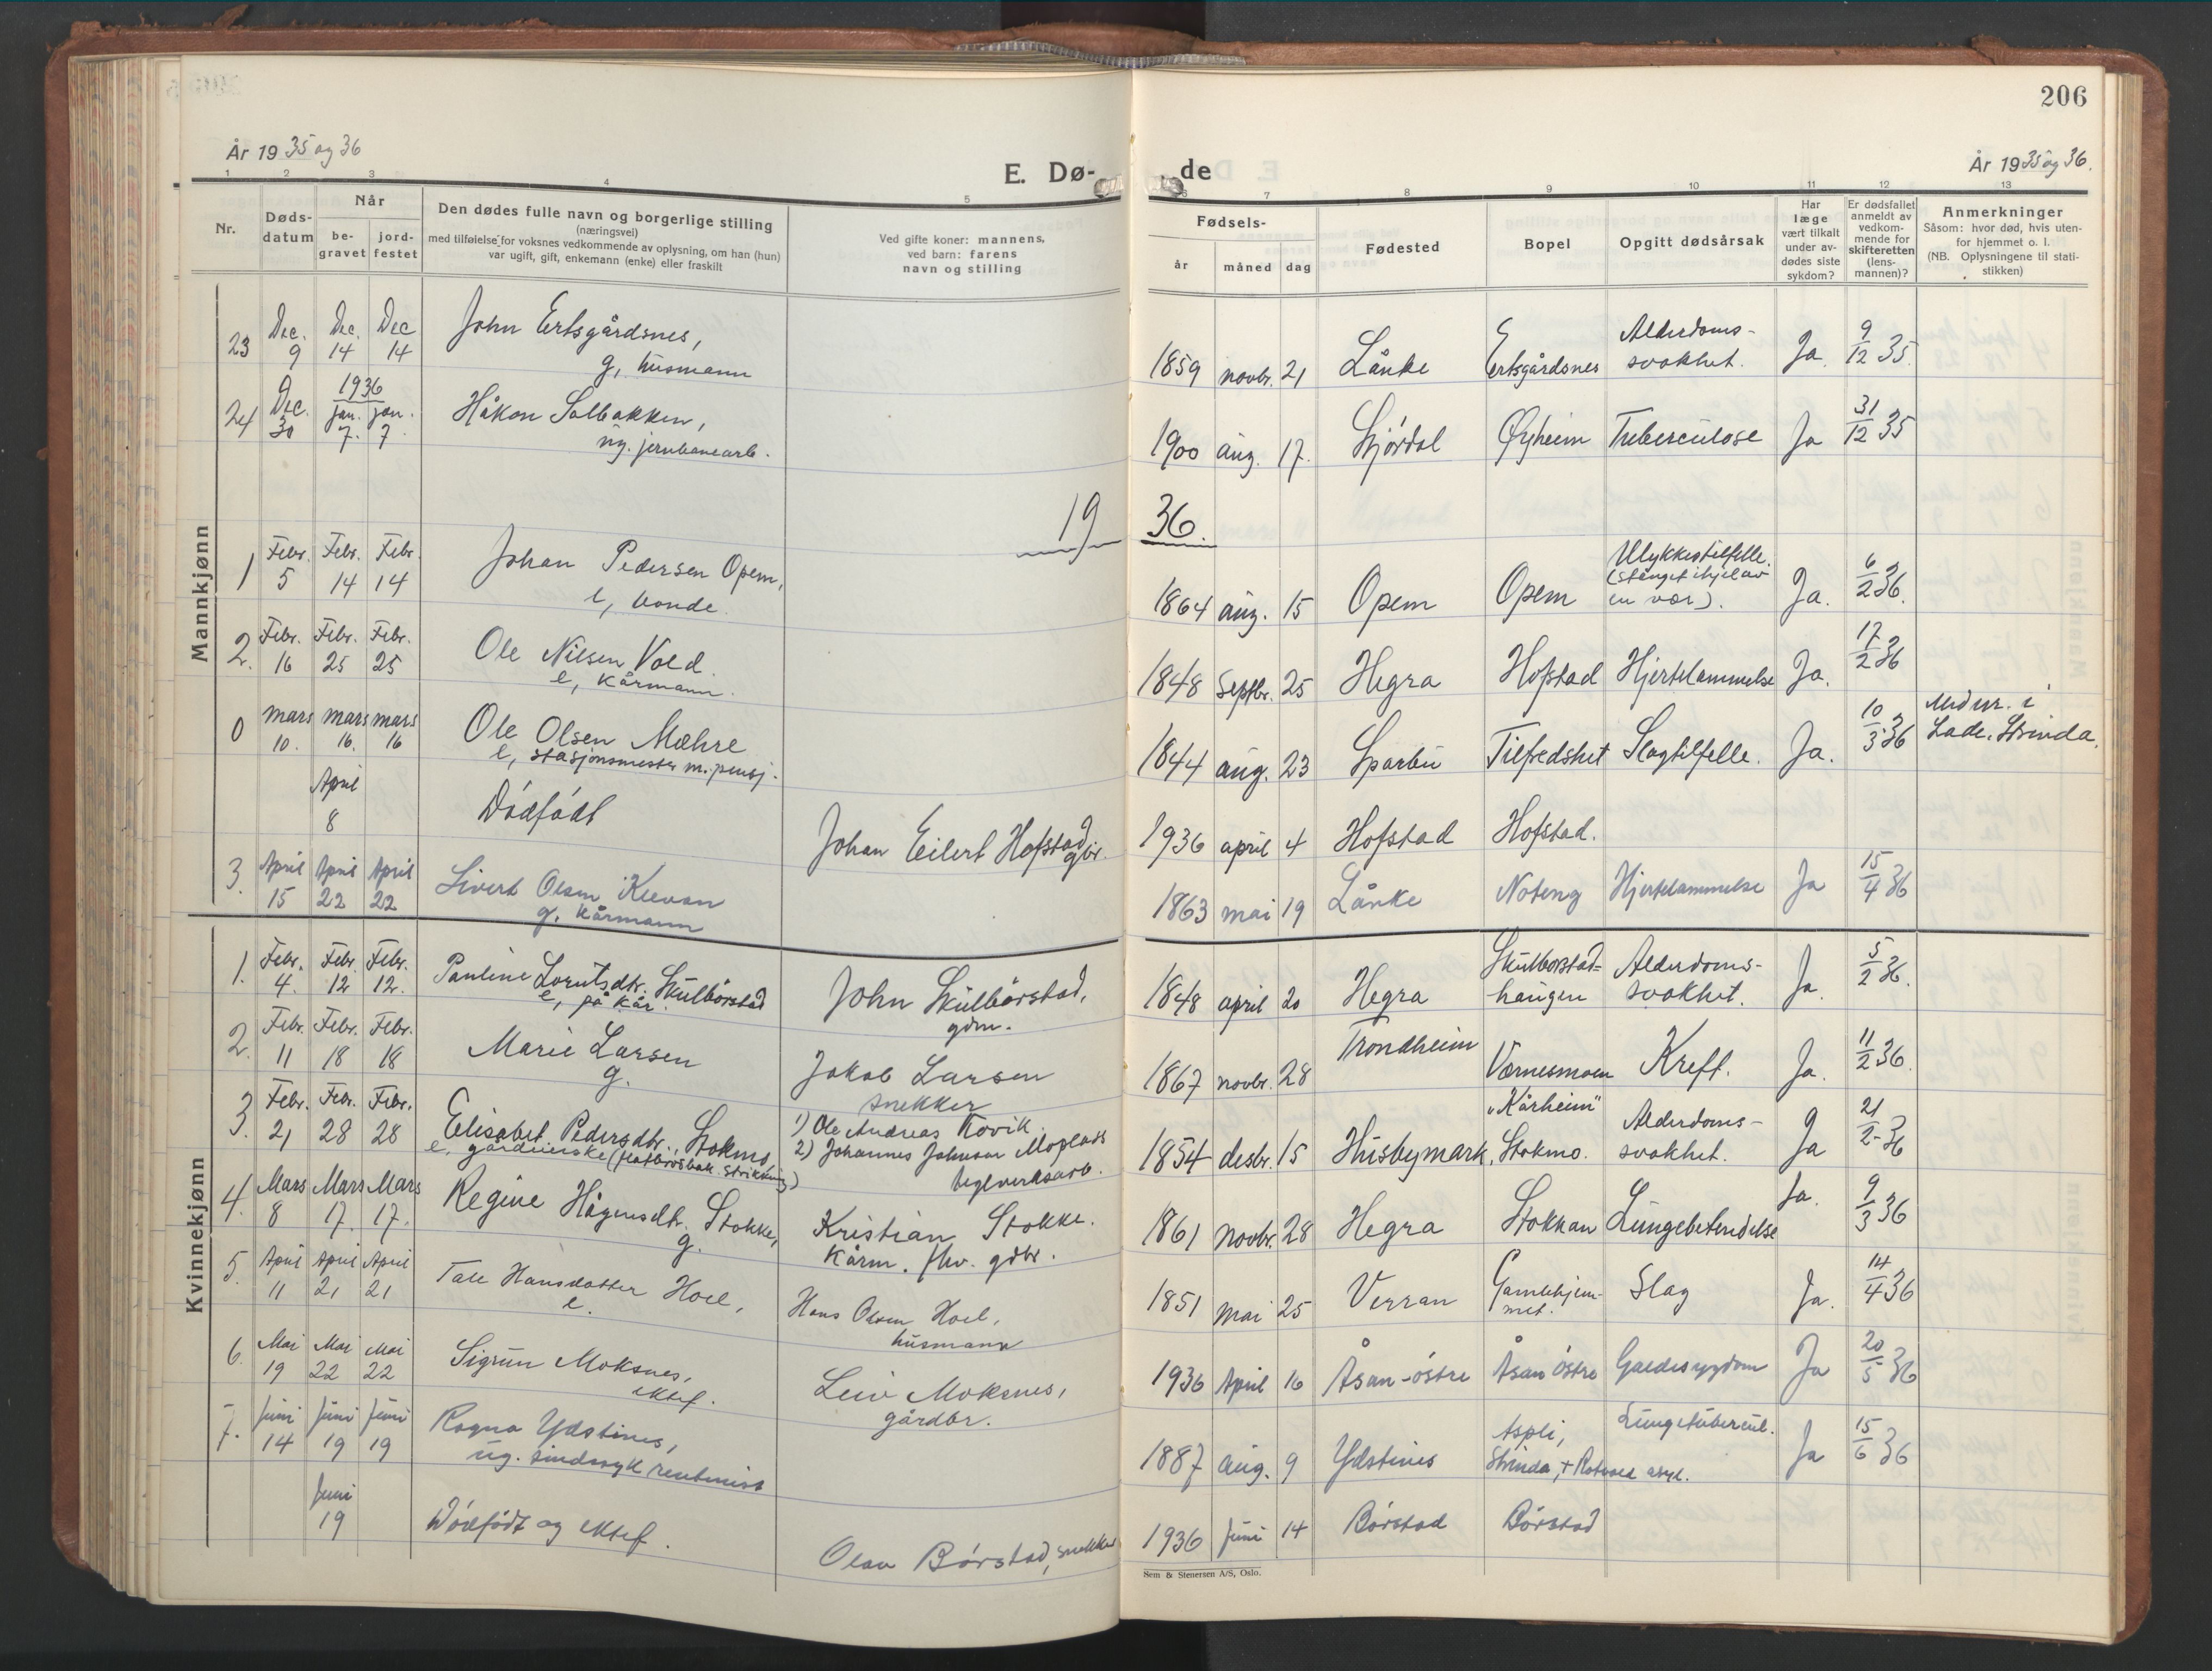 206
År 1935 og 36
E. Dø-
de
År 1935 og 36.
1 2 3 4 5 6 7 8 9 10 11 12 13
Nr.
Døds-
datum
Når
be-
gravet
jord-
festet
Den dødes fulle navn og borgerlige stilling
(næringsvei)
med tilføielse for voksnes vedkommende av oplysning, om han (hun)
var ugift, gift, enkemann (enke) eller fraskilt
Ved gifte koner: mannens,
ved barn: farens
navn og stilling
Fødsels-
år måned dag
Fødested
Bopel
Opgitt dødsårsak
Har
læge
vært tilkalt
under av-
dødes siste
sykdom?
Er dødsfallet
anmeldt av
vedkom-
mende for
skifteretten
(lens-
mannen)?
Anmerkninger
Såsom: hvor død, hvis uten-
for hjemmet o. l.
(NB. Oplysningene til stati-
stikken)
Mannkjønn
23 Dec. 9 Dec. 14 Dec 14 John Ertsgårdsnes,
g, husmann
1859 novbr. 21 Lånke Ertsgårdsnes Alderdoms-
svakhet. Ja. 9/12 35.
24 Dec. 30 1936 jan. 7. jan. 7. Håkon Solbakken,
ug. jernbanearb.
1900 aug. 17. Stjórdal Øyheim Tuberculose Ja 31/12 35
19 36.
1 Febr. 5 Febr. 14 Febr. 14 Johan Pedersen Opem,
e, bonde.
1864 aug. 15 Opem Opem Ulykkestilfelle.
(stanget ihjel av
en vær). Ja. 6/2 36.
2. Febr. 16 Febr. 25 Febr. 25 Ole Nilsen Vold.
e, kårmann.
1848 Septbr. 25 Hegra Hofstad Hjertelammelse Ja. 17/2 36
0 mars 10. mars 16. mars 16 Ole Olsen Mæhre
e, stasjonsmester m. pensj.
1844 aug. 23 Sparbu Tilfredshet Slagtilfelle. Ja. 10/3 36 i
Lade, Strinda.
April 8 Dódfódt Johan Eilert Hofstad
gbr.
1936 april 4 Hofstad Hofstad.
3. April 15 April 22 April 22 Sivert Olsen Kleven
g. kårmann
1863 mai 19 Lånke Noteng Hjertelammelse Ja 15/4 36
Kvinnekjønn
1. Febr. 4. Febr. 12 Febr. 12. Pauline Lorntsdtr. Skulbórstad
e, på kår.
John Skulbórstad,
gdm.
1848 april 20 Hegra Skulborstad=
haugen Alderdoms-
svakhet. Ja. 5/2 36.
2. Febr. 11 Febr. 18 Febr. 18 Marie Larsen
g.
Jakob Larsen
snekker
1867 novbr. 28 Trondheim Værnesmoen Kreft. Ja. 11/2 36.
3. Febr. 21 Febr. 28 Febr. 28 Elisabet Pedersdtr. Stokmo
e, gårdeierske (flatbrósbak. strikking)
1) Ole Andreas Rovik.
2) Johannes Johnsen Moplass
teglverksarb.
1854 desbr. 15 Husbymark, "Kårheim"
Stokmo. Alderdoms-
svakhet. Ja 21/2 36
4. Mars 8 Mars 17. Mars 17. Regine Hågensdtr. Stokke,
g.
Kristian Stokke.
Kårm. fhv. gdbr.
1861 Novbr. 28 Hegra Stokkan Lungebetendelse Ja. 9/3 36
5. April 11 April 21 April 21 Tale Hansdatter Hoel,
e.
Hans Olsen Hoel,
husmann
1851 Mai 25 Verran Gamlehjem-
met. Slag Ja. 14/4 36
6. Mai 19 Mai 22 Mai 22 Sigrun Moksnes,
ektef.
Leiv Moksnes,
gårdbr.
1936 April 16 Åsan-óstre Åsan óstre Galdesygdom Ja 20/5 36
7. Juni 14 Juni 19 Juni 19 Ragna Ydstines,
ug. sindssyk rentenist
1887 aug. 9 Ydstines Aspli,
Strinda, + Rotvold asyl. Lungetubercul. Ja 15/6 36
Juni 19 Dódfódt og ektef.
Olav Bórstad, snekker
1936 Juni 14 Bórstad Bórstad
Sem & Stenersen A/S, Oslo.